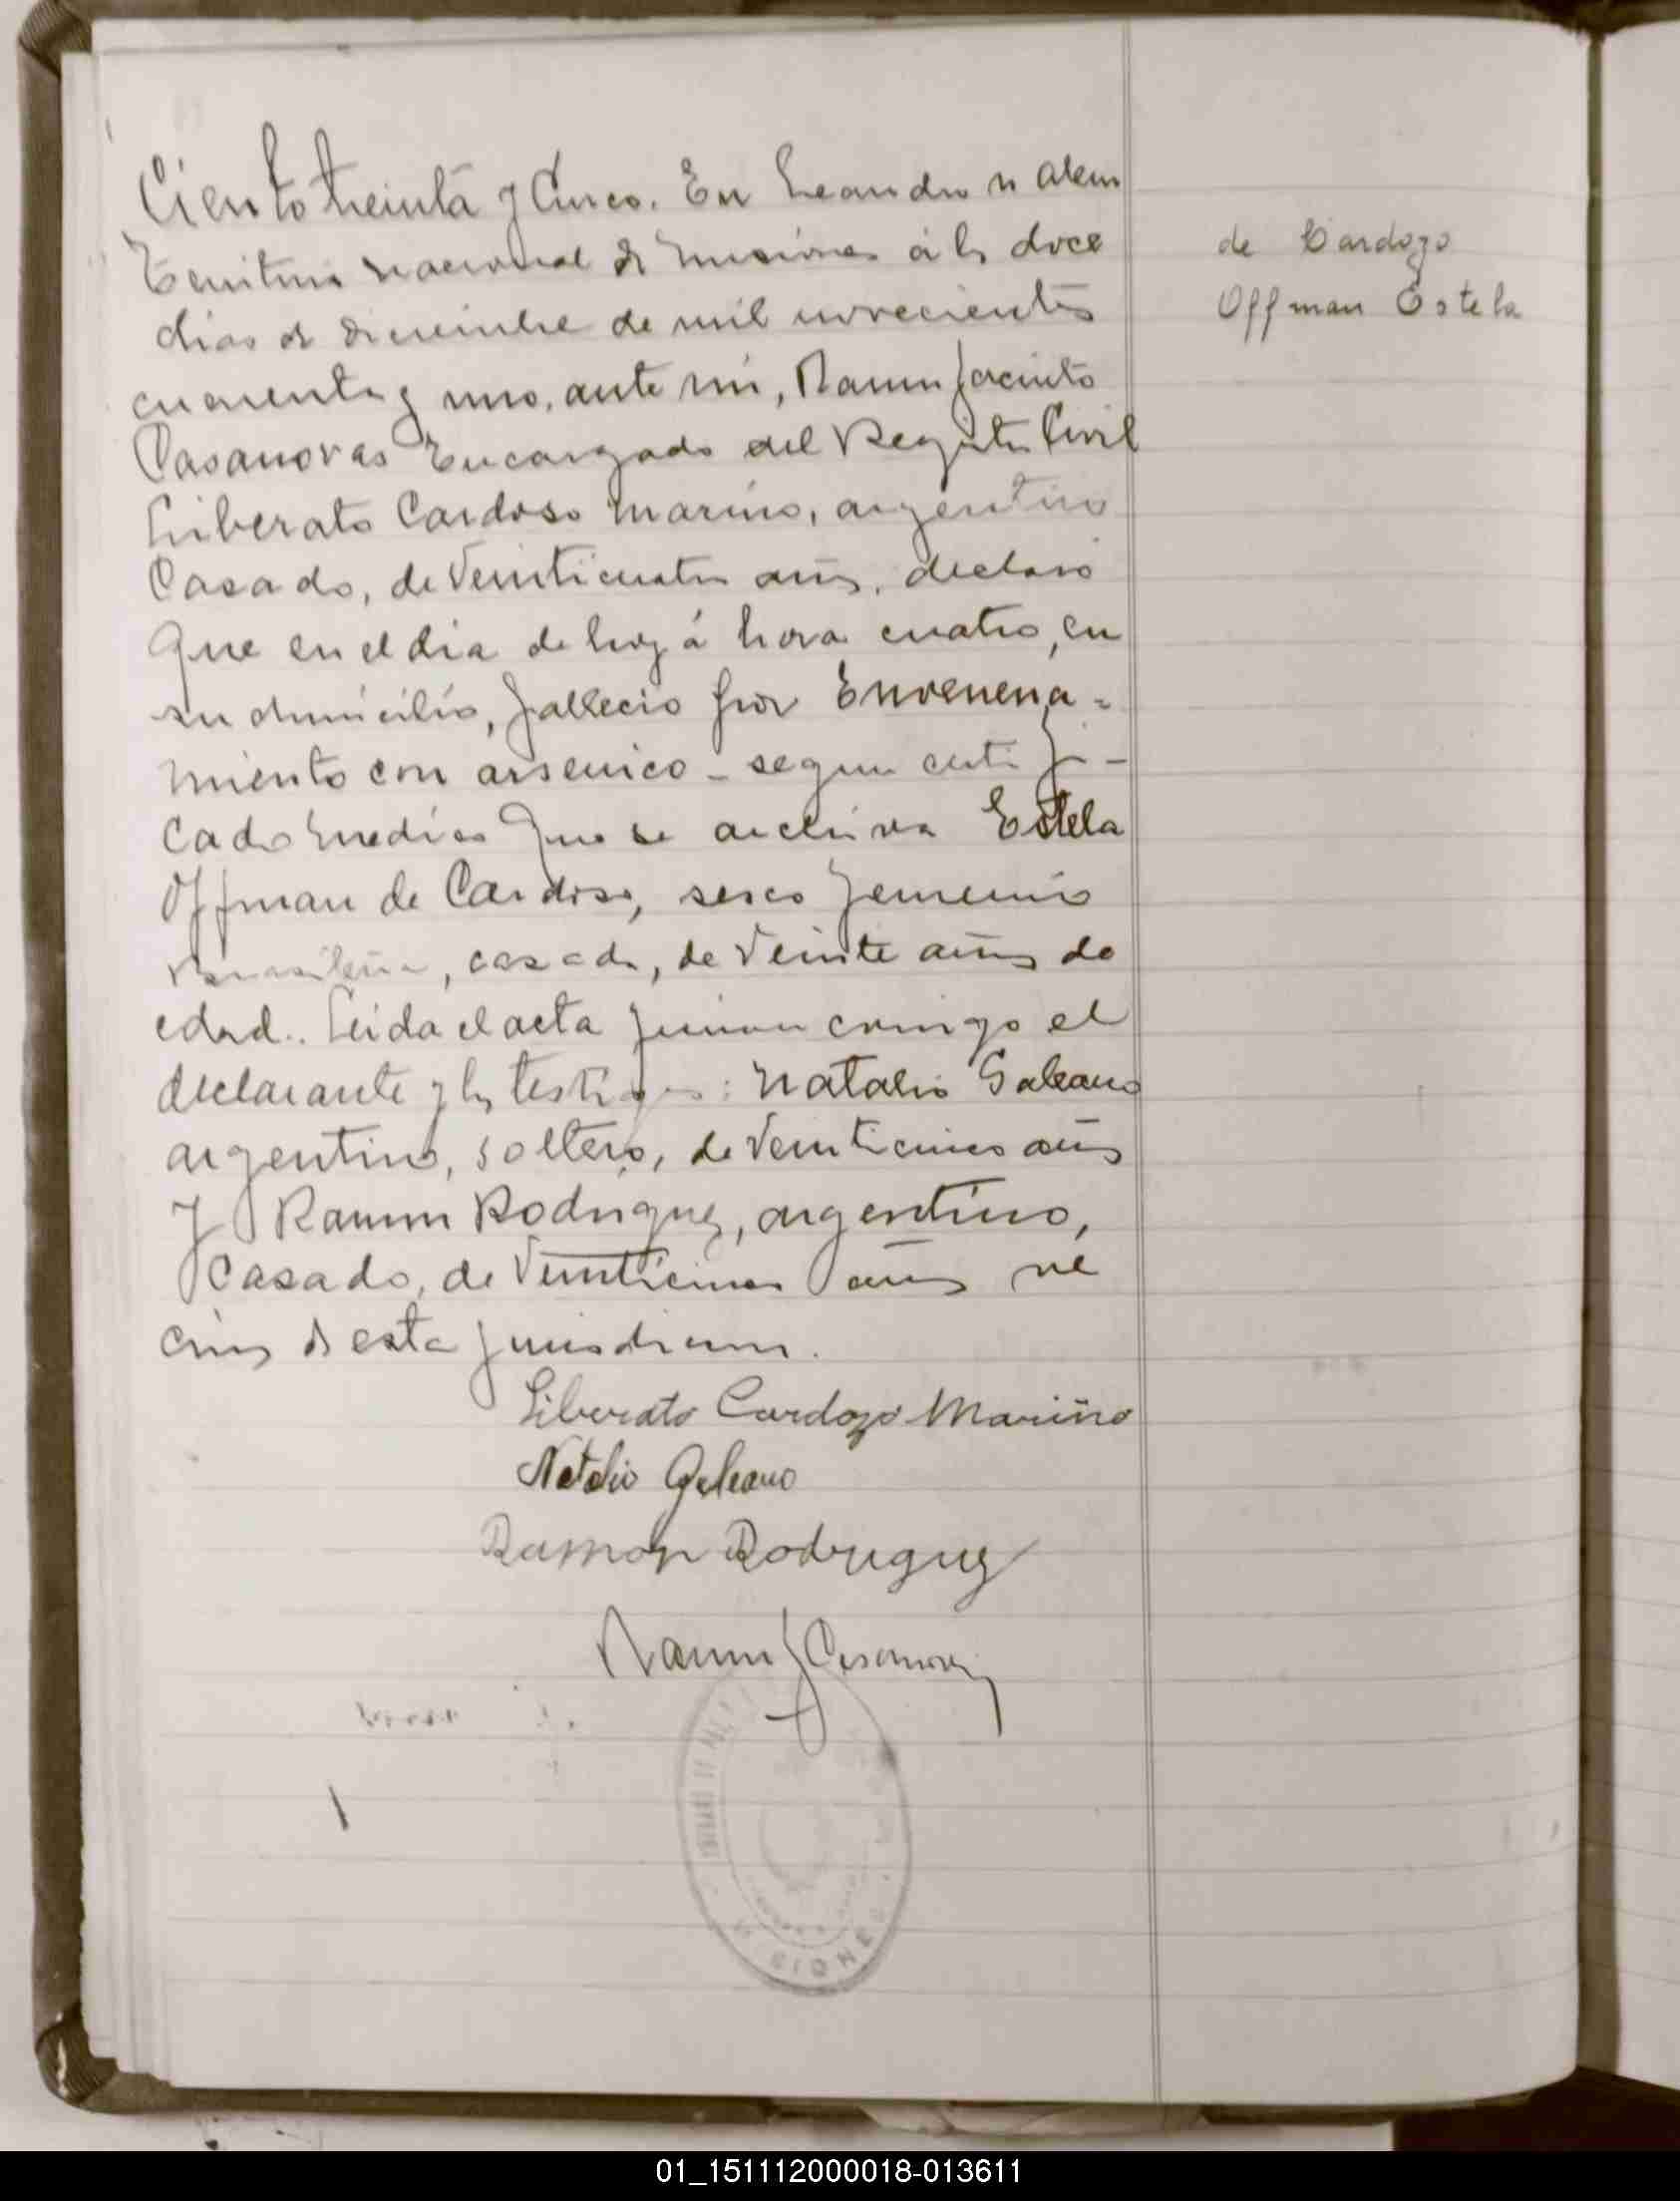 Ciento treinta y Cinco. En Leandro n Alem
Territorio nacional de misiones á los doce
dias de diciembre de mil novecientos
cuarenta y uno, ante mi, Ramon Jacinto
Casanovas Encargado del Registro Civil
Liberato Cardoso Marino, argentino
Casado, de Veinticuatro años, declaró
que en el dia de hoy á hora cuatro, en
su domicilio, fallecio por Envenena=
miento con arsenico - segun certifi-
cado medico que se archiva Estela
Offman de Cardoso, sexo femenino
brasileña, casada, de Veinte años de
edad.. Leida el acta firman conmigo el
declarante y los testigos: Natalio Galeano
argentino, soltero, de Veinticinco años
y Ramon Rodriguez, argentino,
Casado, de Veinticinco años ve
cinos de esta jurisdiccion.
Liberato Cardozo Mariño
Natalio Galeano
Ramon Rodriguez
Ramon J Casanovas
de Cardozo
Offman Estela
MISIONES
01_151112000018-013611